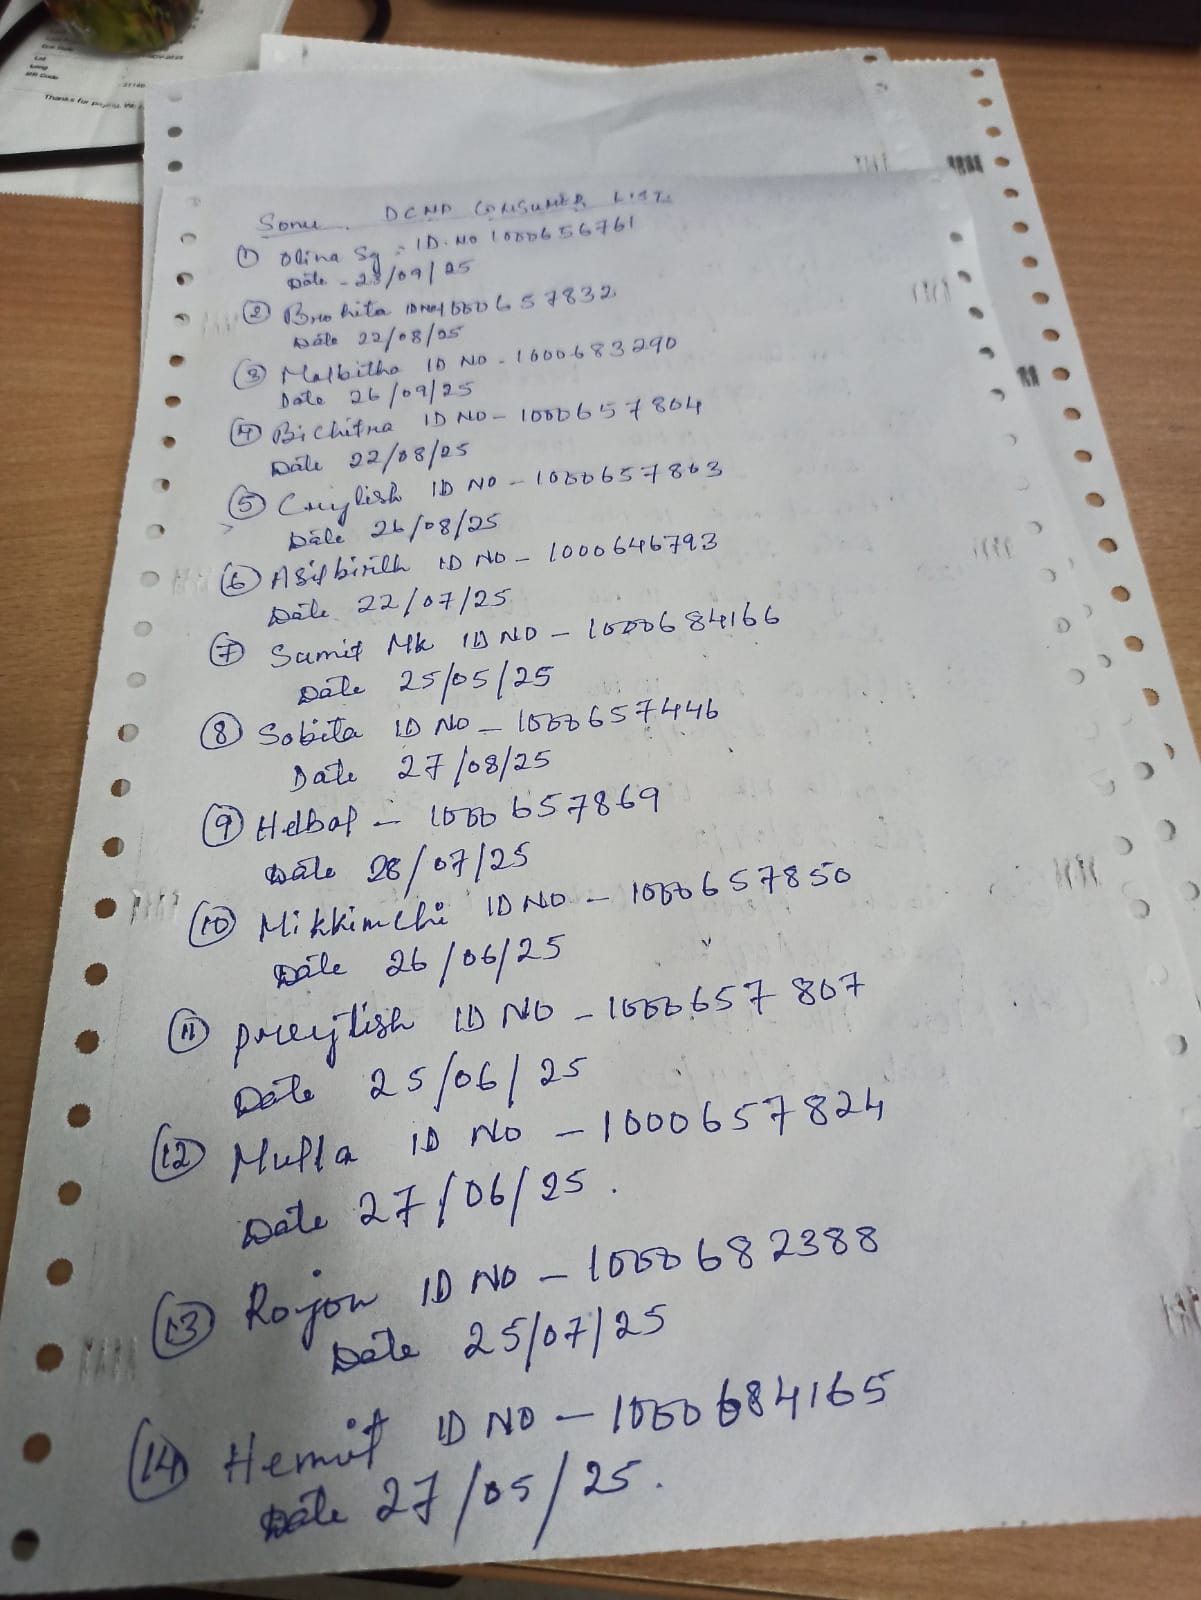 Due Date
Lat
Long
MR Code
Thanks for paying. We
Sonu. DCND CONSUMER LIST.
① Olina Sg - ID. NO 1000656761
Date - 23/09/25
② Brohita ID NO 1000657832
Date 22/08/25
③ Malbitha ID NO - 1000683290
Date 26/09/25
④ Bichitra ID NO - 1000657804
Date 22/08/25
⑤ ID NO - 1000657803
Date 26/08/25
⑥ ID NO - 1000646793
Date 22/07/25
⑦ Samit Mk ID NO - 1000684166
Date 25/05/25
⑧ Sobita ID NO - 1000657446
Date 27/08/25
⑨ Helbal - 1000657869
Date 28/07/25
⑩ Mikkimchi ID NO - 1000657850
Date 26/06/25
⑪ ID NO - 1000657807
Date 25/06/25
⑫ Mulla ID NO - 1000657824
Date 27/06/25.
⑬ Royjon ID NO - 1000682388
Date 25/07/25
⑭ Hemit ID NO - 1000684165
Date 27/05/25.